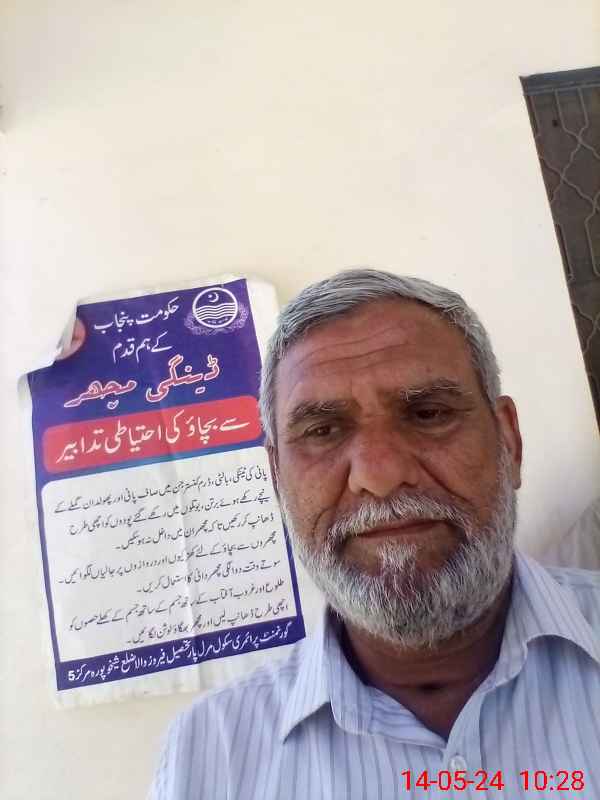 حکومت پنجاب
کے ہم قدم
ڈینگی مچھر
سے بچاؤ کی احتیاطی تدابیر
پانی کی ٹینکی، بالٹی، ڈرم کنستر جن میں صاف پانی اور پھولدان گملے کے
نیچے رکھے ہوئے برتن، بوتلوں میں رکھے گئے پودوں کو اچھی طرح
ڈھانپ کر رکھیں تاکہ مچھر ان میں داخل نہ ہو سکیں۔
مچھروں سے بچاؤ کے لئے کھڑکیوں اور دروازوں پر جالیاں لگوائیں۔
سوتے وقت دوائی لگی مچھر دانی کا استعمال کریں۔
طلوع اور غروب آفتاب کے ساتھ جسم کے کھلے حصوں کو
اچھی طرح ڈھانپ لیں اور مچھر بھگاؤ لوشن لگائیں۔
گورنمنٹ پرائمری سکول مرل پار تحصیل فیروزوالا ضلع شیخوپورہ مرکز 5
14-05-24 10:28